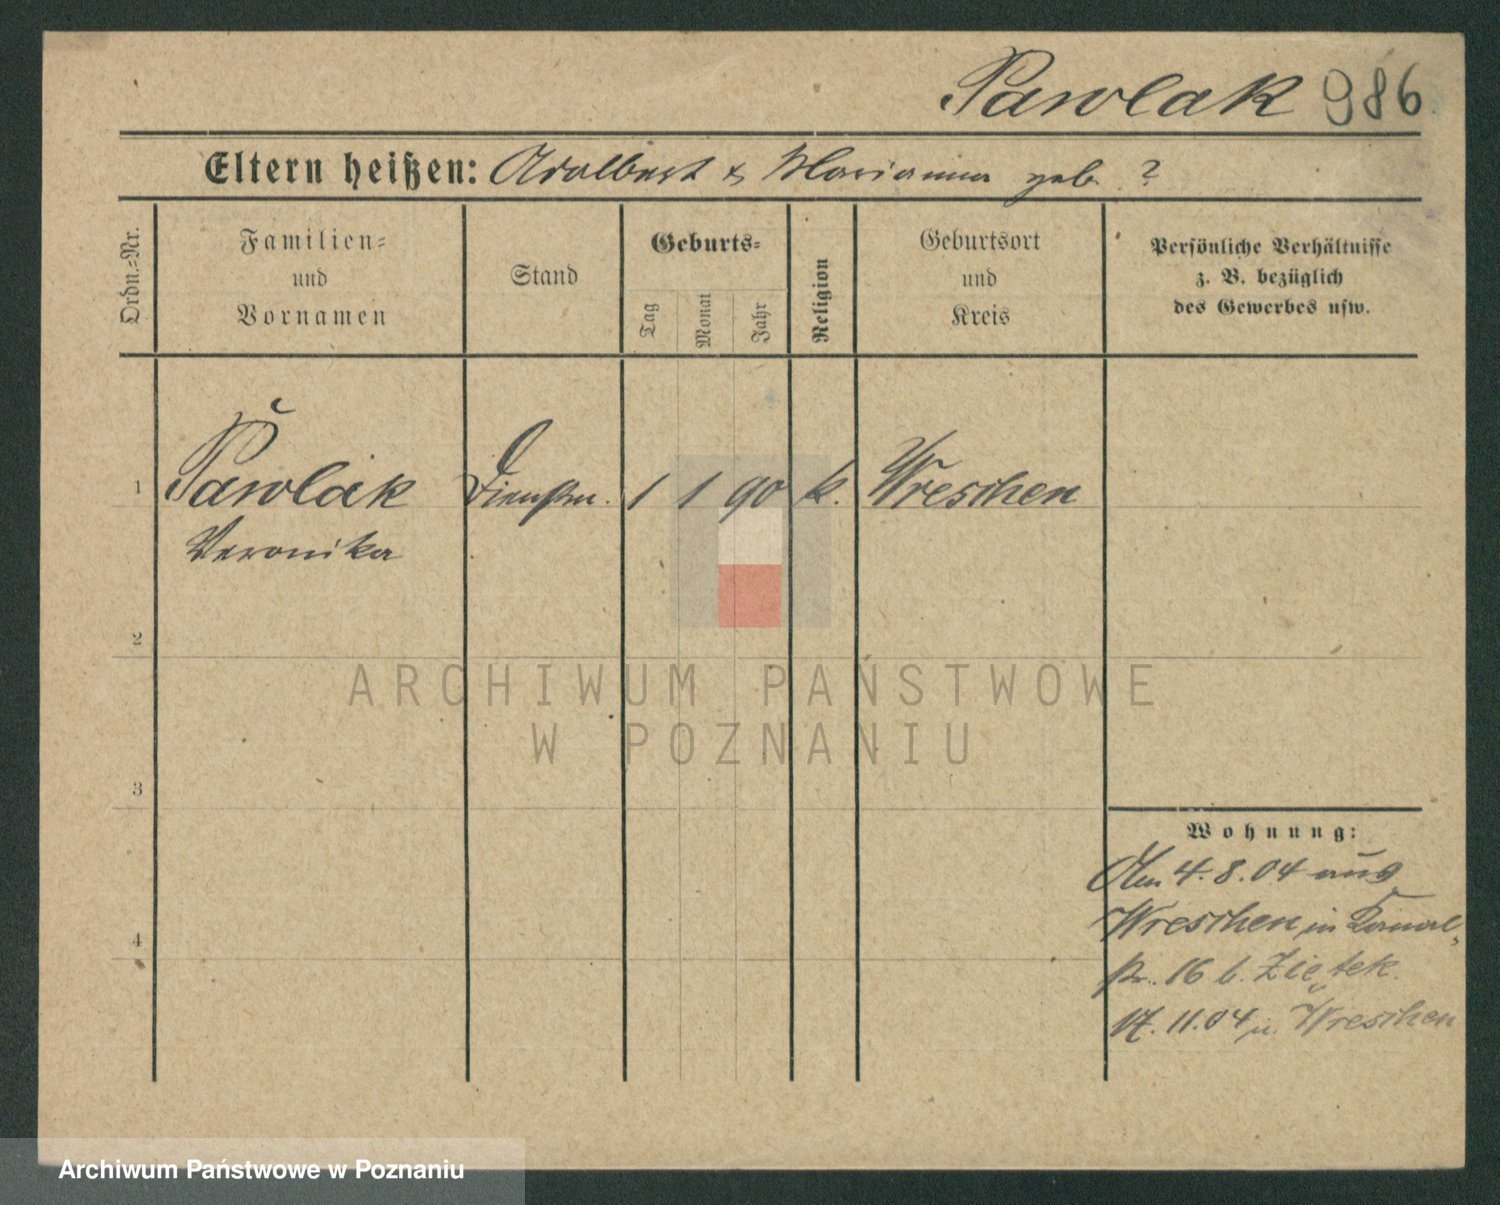 Pawlak 986
Eltern heißen: Adalbert & Marianna geb. ?
Ordn.-Nr.
Familien-
und
Vornamen
Stand
Geburts-
Tag
Monat
Jahr
Religion
Geburtsort
und
Kreis
Persönliche Verhältnisse
z. B. bezüglich
des Gewerbes usw.
1 Pawlak Dienstm. 1 1 90 k. Wreschen
Veronika
2
3
4
Wohnung:
Am 4.8.04 aus
Wreschen in Kanal-
str. 16 b. Ziętek.
17.11.04 n. Wreschen
ARCHIWUM PAŃSTWOWE
W POZNANIU
Archiwum Państwowe w Poznaniu